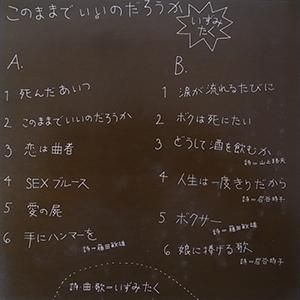 このままでいいのだろうか
いずみ
たく
A.
1 死んだあいつ
2 このままでいいのだろうか
3 恋は曲者
4 SEXブルース
5 愛の屍
6 手にハンマーを
詩=藤田敏雄
B.
1 涙が流れるたびに
2 ボクは死にたい
3 どうして酒を飲むか
詩=山上路夫
4 人生は一度きりだから
詩=岩谷時子
5 ボクサー
詩=藤田敏雄
6 娘に捧げる歌
詩=岩谷時子
詩・曲・歌=いずみたく